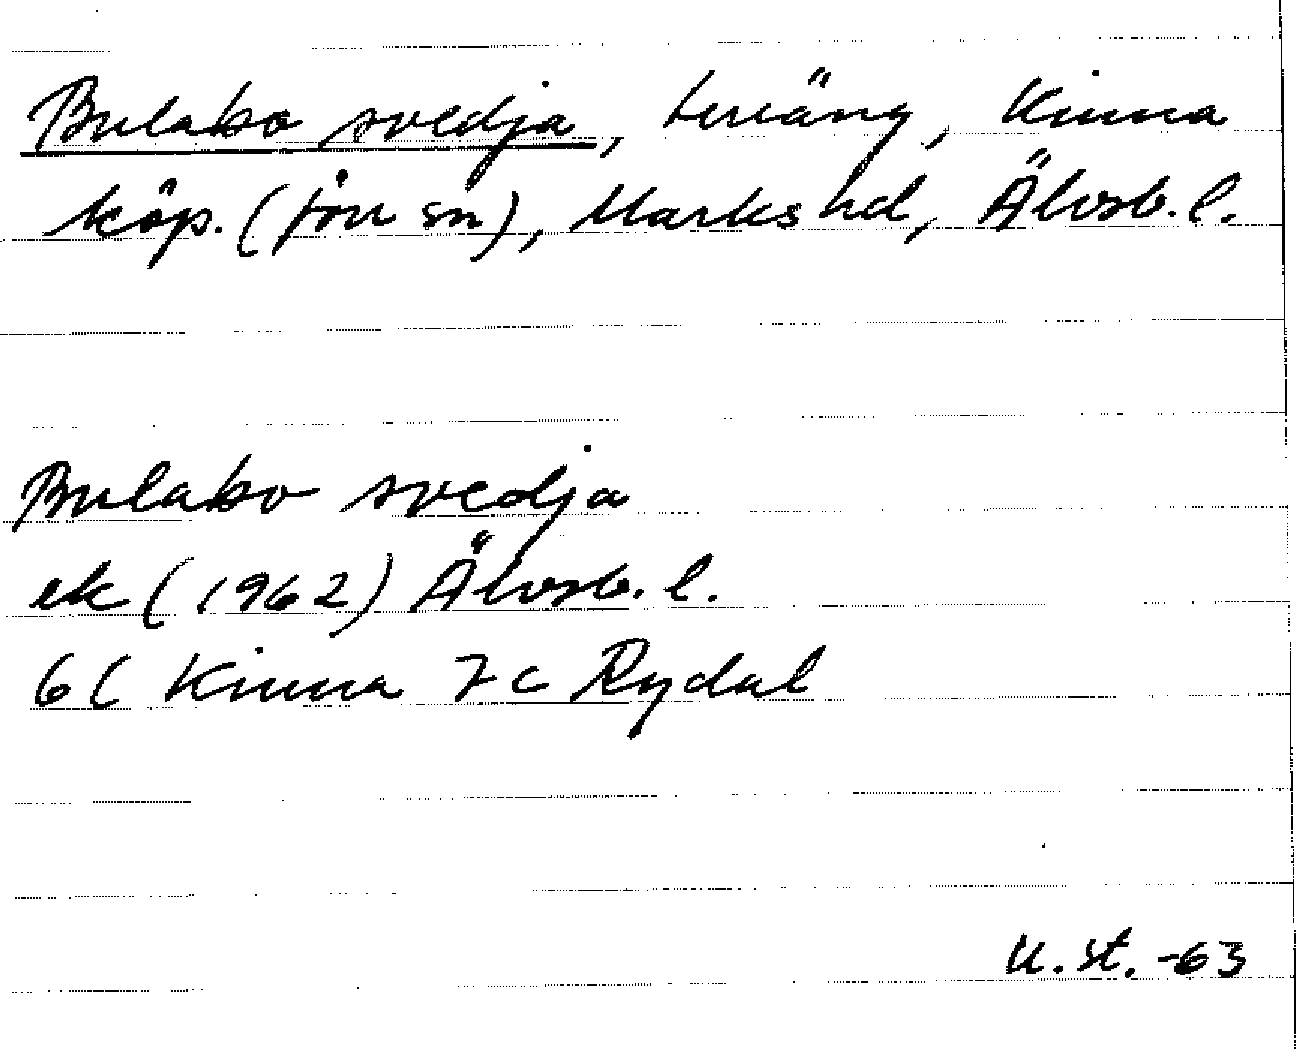 Bulabo svedja, terräng, Kinna
köp. (förr sn), Marks hd, Älvsb. l.
Bulabo svedja
ek (1962) Älvsb. l.
6C Kinna 7c Rydal
U. st. -63